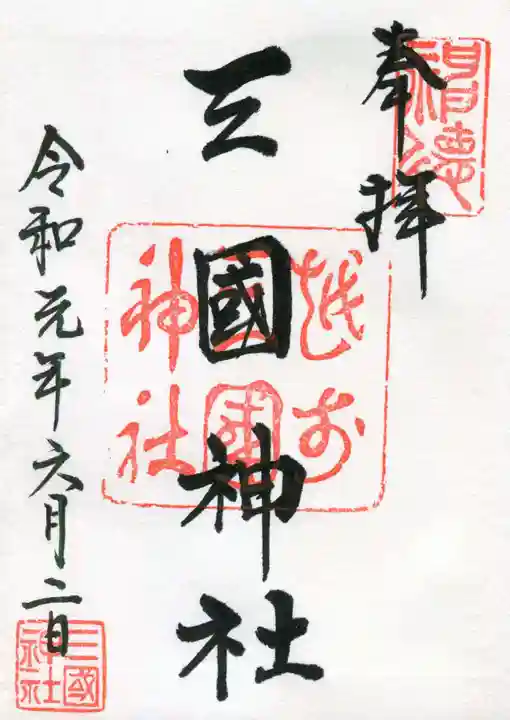 奉拝
神徳
三國神社
越前
三國
神社
令和元年六月二日
三國
神社